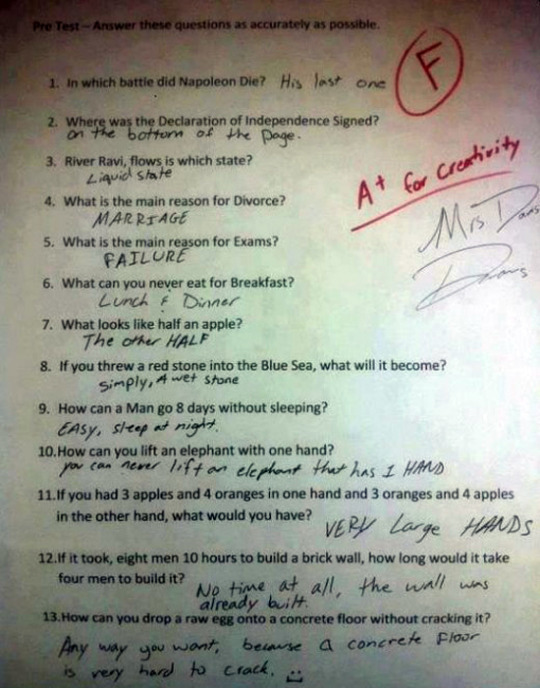 Pre Test – Answer these questions as accurately as possible.
F
1. In which battle did Napoleon Die? His last one
2. Where was the Declaration of Independence Signed?
on the bottom of the page.
3. River Ravi, flows is which state?
Liquid state
A+ for Creativity
4. What is the main reason for Divorce?
MARRIAGE
Mrs Davis
5. What is the main reason for Exams?
FAILURE
6. What can you never eat for Breakfast?
Lunch & Dinner
7. What looks like half an apple?
The other HALF
8. If you threw a red stone into the Blue Sea, what will it become?
simply, A wet stone
9. How can a Man go 8 days without sleeping?
EASY, sleep at night.
10. How can you lift an elephant with one hand?
you can never lift an elephant that has 1 HAND
11. If you had 3 apples and 4 oranges in one hand and 3 oranges and 4 apples
in the other hand, what would you have?
VERY Large HANDS
12. If it took, eight men 10 hours to build a brick wall, how long would it take
four men to build it?
No time at all, the wall was
already built.
13. How can you drop a raw egg onto a concrete floor without cracking it?
Any way you want, because a concrete floor
is very hard to crack.